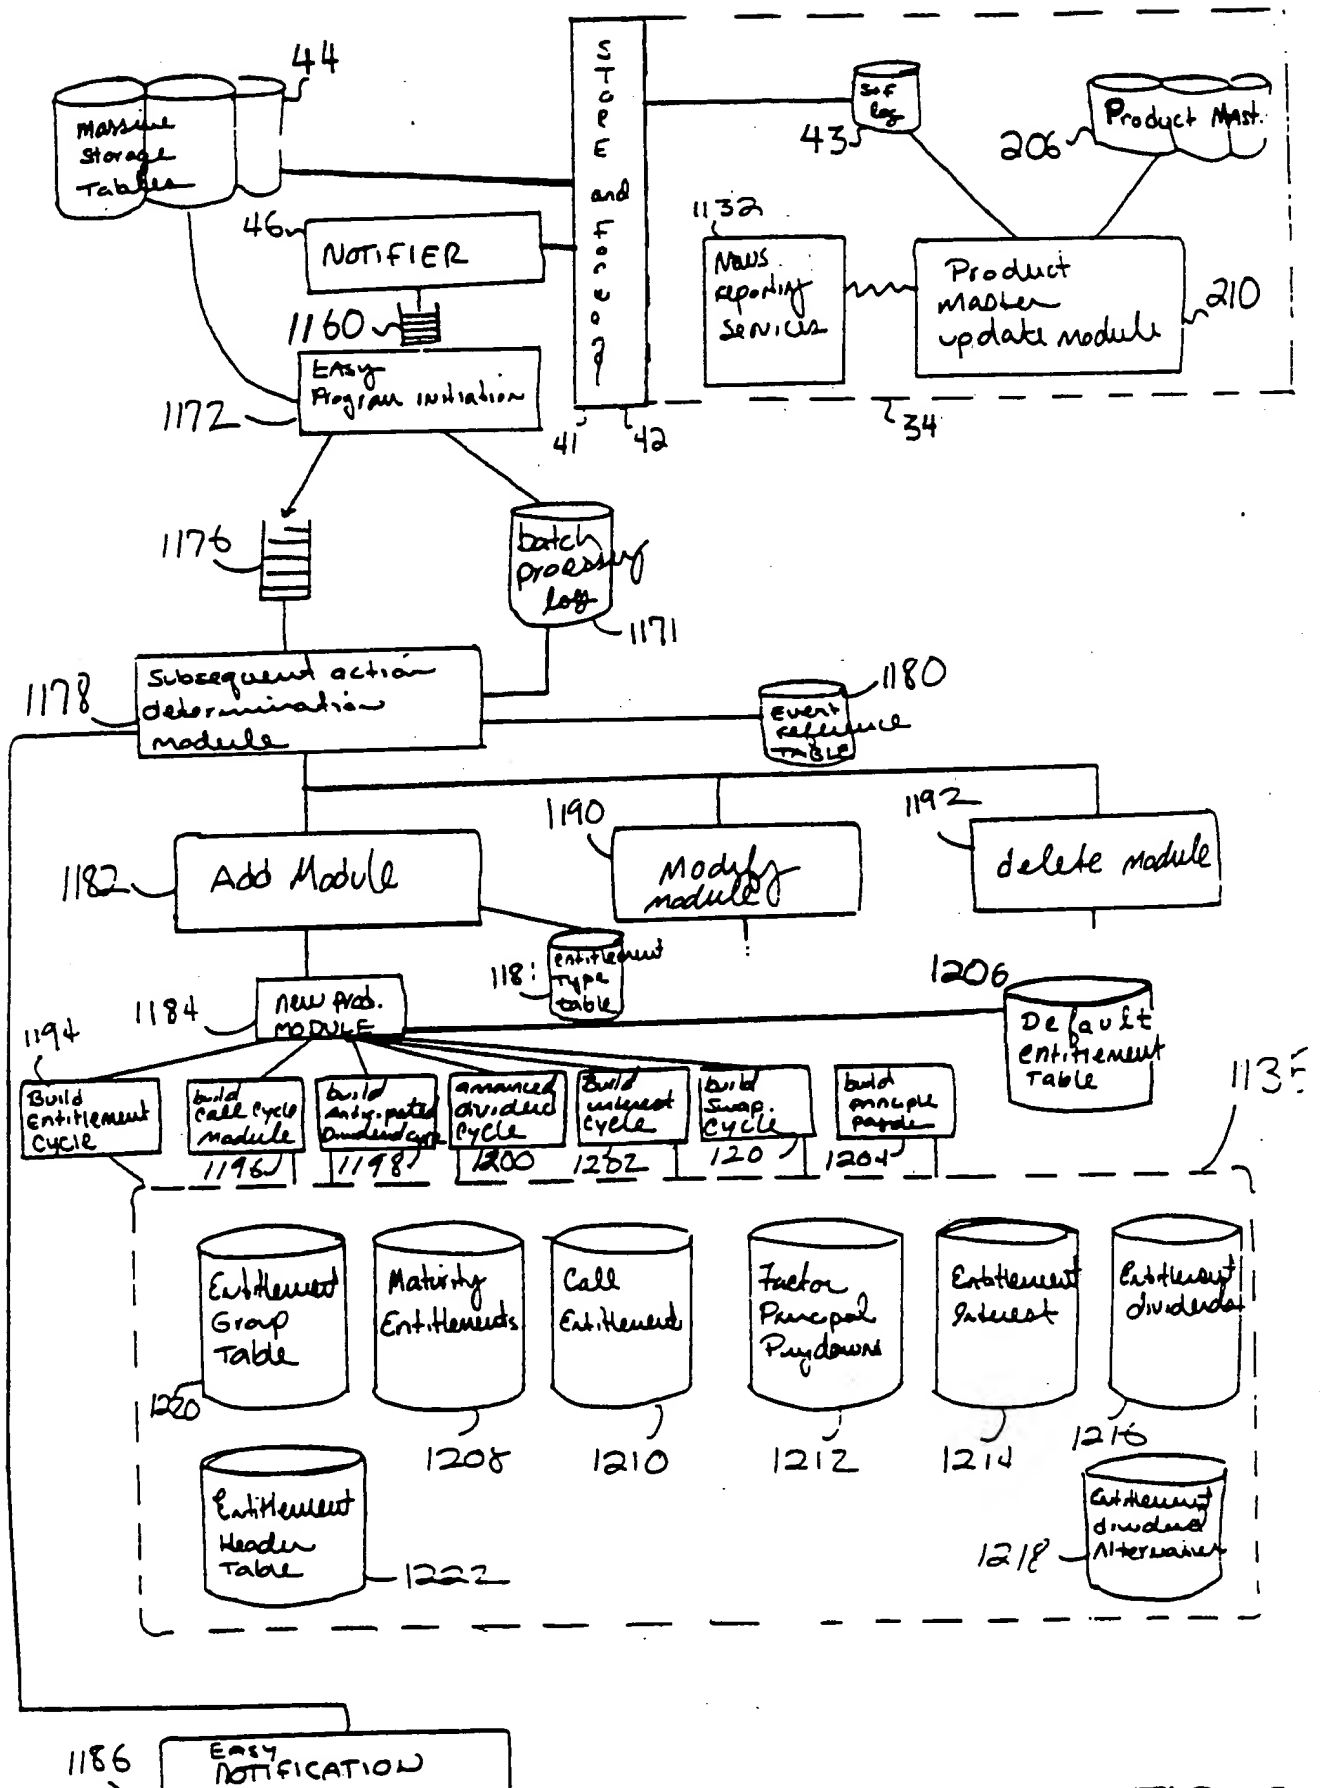 44
Massive
Storage
Tables
STORE and Forward
S&F
log
43
Product Mast.
206
46
NOTIFIER
1132
News
reporting
services
Product
Master
update module
210
1160
EASY
Program initiation
1172
41
42
34
1176
batch
processing
log
1171
1178
Subsequent action
determination
module
1180
Event
reference
TABLE
1190
1192
1182
Add Module
Modify
module
delete module
entitlement
Type
table
118
1206
1184
new prod.
MODULE
Default
entitlement
Table
1194
113
Build
Entitlement
Cycle
build
Call Cycle
Module
build
Anticipated
Dividend Cycle
announced
dividend
cycle
Build
interest
cycle
build
Swap.
cycle
build
principle
1196
1198
1200
1202
120
1204
Entitlement
Group
Table
Maturity
Entitlements
Call
Entitlement
Factor
Principal
Paydowns
Entitlement
Interest
Entitlement
dividends
1220
1208
1210
1212
1214
1216
Entitlement
Header
Table
1222
Entitlement
dividend
Alternatives
1218
1186
EASY
NOTIFICATION